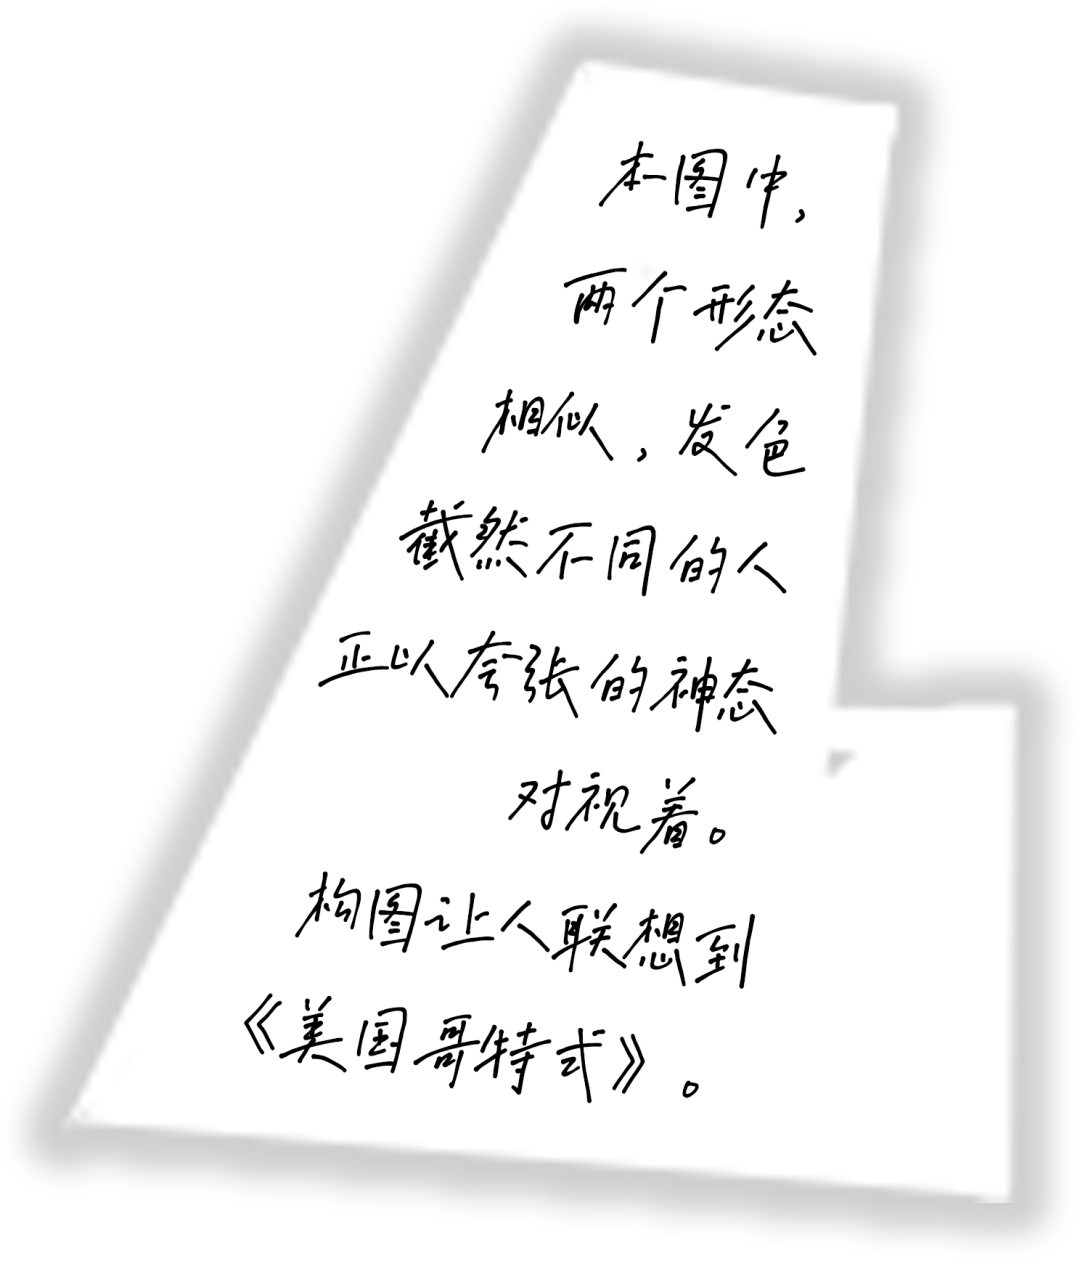 本图中，
两个形态
相似，发色
截然不同的人
正以夸张的神态
对视着。
构图让人联想到
《美国哥特式》。